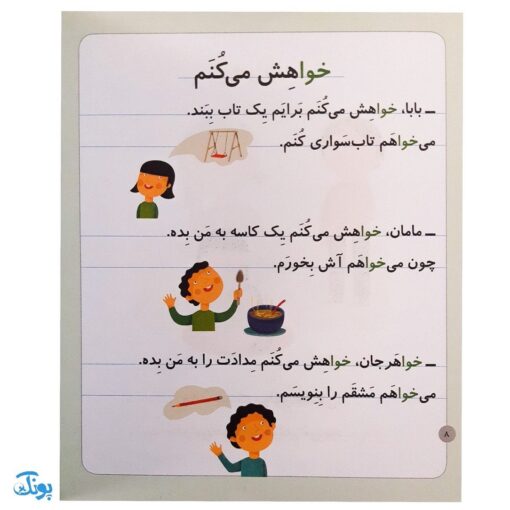 خواهِش می‌کُنَم
ــ بابا، خواهِش می‌کُنَم بَرایَم یِک تاب بِبَند.
می‌خواهَم تاب‌سَواری کُنَم.
ــ مامان، خواهِش می‌کُنَم یِک کاسه به مَن بِده.
چون می‌خواهَم آش بِخورَم.
ــ خواهَرجان، خواهِش می‌کُنَم مِدادَت را به مَن بِده.
می‌خواهَم مَشقَم را بِنویسَم.
۸
پونک